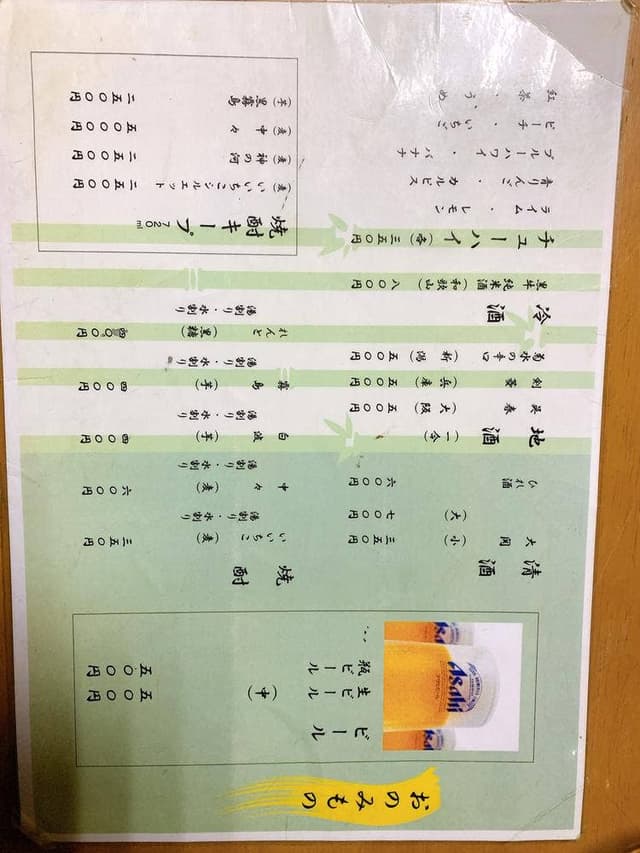 おのみもの
ビール
生ビール（中） 五〇〇円
瓶ビール 五〇〇円
Asahi
清酒
大関（小） 三五〇円
（大） 七〇〇円
ひれ酒 六〇〇円
地酒（一合）
呉春（大阪） 五〇〇円
剣菱（兵庫） 五〇〇円
菊水の辛口（新潟） 五〇〇円
冷酒
黒牛純米酒（和歌山） 八〇〇円
チューハイ（各）三五〇円
ライム・レモン
青りんご・カルピス
ブルーハワイ・バナナ
ピーチ・いちご
紅茶・うめ
焼酎
いいちこ（麦） 三五〇円
湯割り・水割り
中々（麦） 六〇〇円
湯割り・水割り
白波（芋） 四〇〇円
湯割り・水割り
霧島（芋） 四〇〇円
湯割り・水割り
れんと（黒糖） 四〇〇円
湯割り・水割り
焼酎キープ 720ml
（麦）いいちこシルエット 二五〇〇円
（麦）神の河 二五〇〇円
（麦）中々 五〇〇〇円
（芋）黒霧島 二五〇〇円